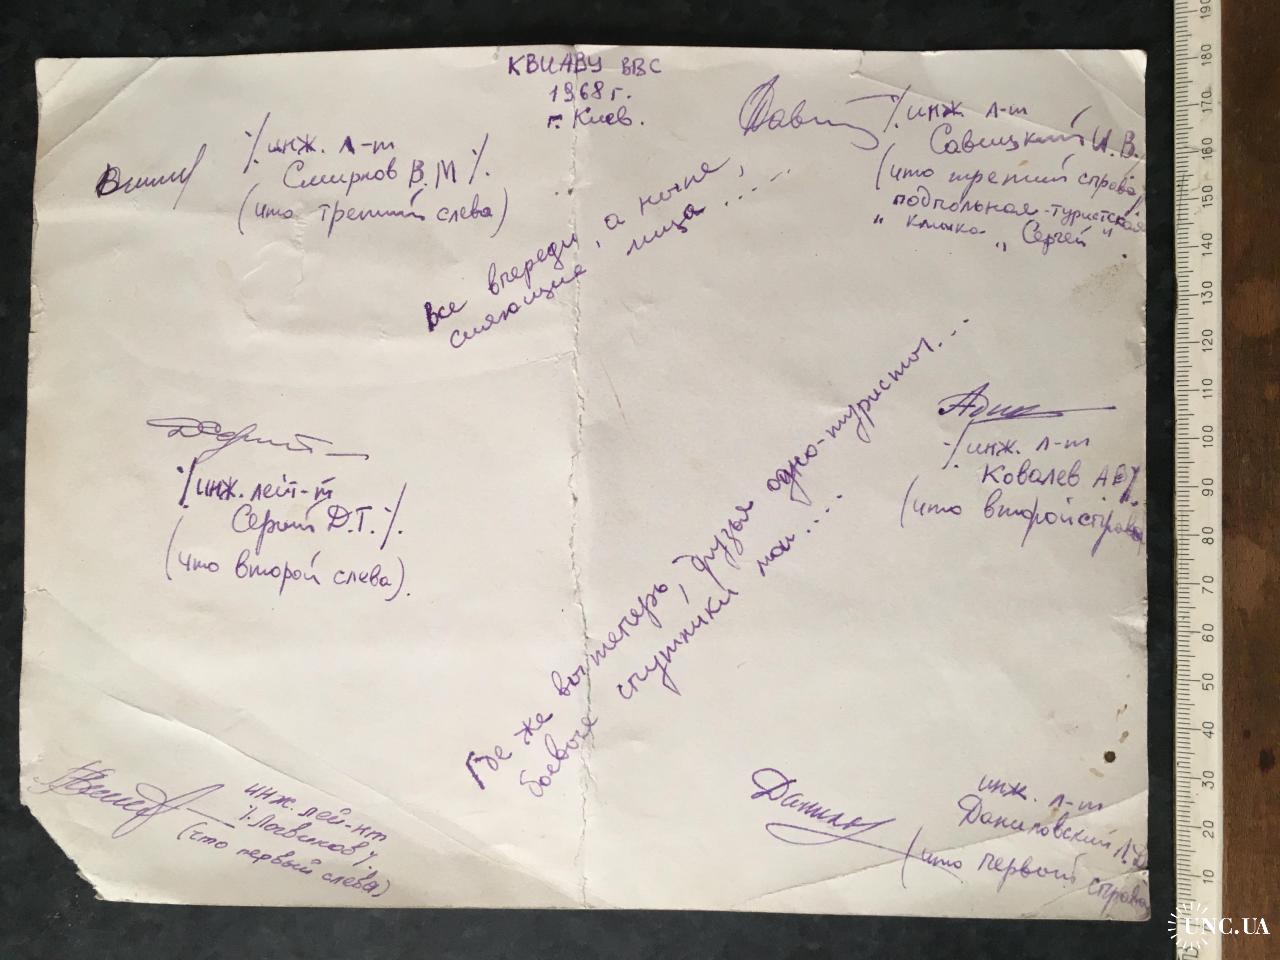 КВИАВУ ВВС
1968 г.
г. Киев.
·/. инж. л-т
Смирнов В.М ·/.
(что третий слева)
·/. инж л-т
Савицкий И.В.
(что третий справа)
подпольная-туристская
" кличка „ Сергей "
Все впереди, а ныне,
сияющие лица . . . .
·/. инж. лейт-т
Сергий Д.Т. ·/.
(что второй слева).
·/. инж. л-т
Ковалев А
(что второй справа
Где же вы теперь, друзья одно-туристы. . . .
боевые спутники мои . . .
инж. лей-нт
Логвинов
(что первый слева)
инж. л-т
Даниловский Л.Д
(что первый справа
190
180
170
160
150
140
130
120
110
100
90
80
70
60
50
40
30
20
10
UNC.UA